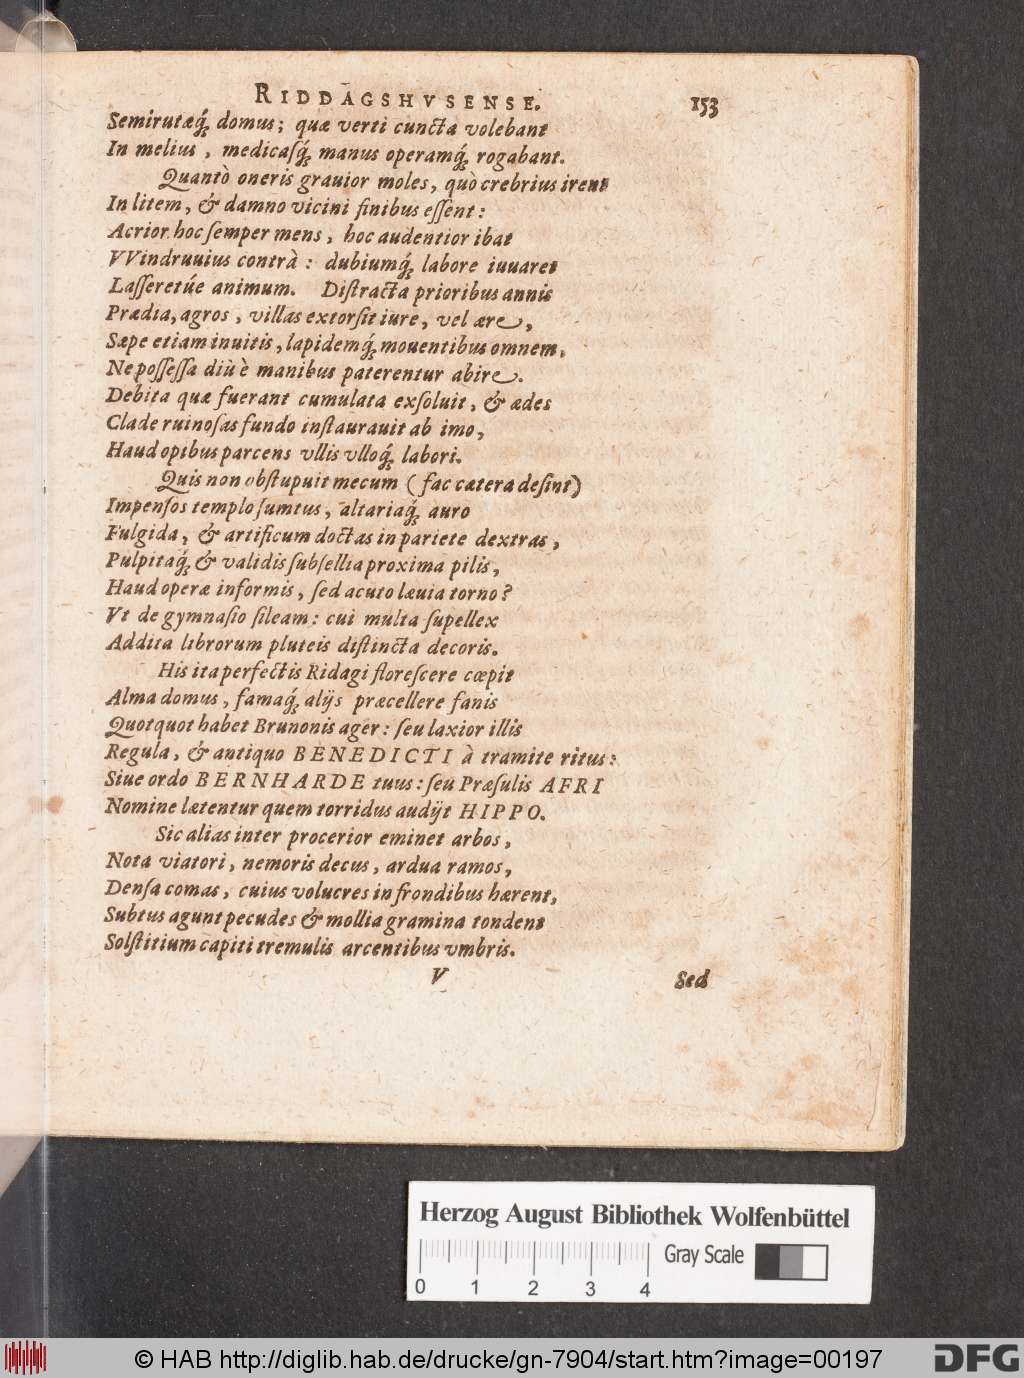 RIDDAGSHVSENSE. 153
Semirutæq́; domus; quæ verti cuncta volebant
In melius, medicaſq́; manus operamq́; rogabant.
Quantò oneris grauior moles, quò crebrius irent
In litem, & damno vicini finibus eſſent:
Acrior hoc ſemper mens, hoc audentior ibat
VVindruuius contrà: dubiumq́; labore iuuaret
Laſſeretúe animum. Diſtracta prioribus annis
Prædia, agros, villas extorſit iure, vel ære,
Sæpe etiam inuitis, lapidemq́; mouentibus omnem,
Ne poſſeſſa diù è manibus paterentur abire.
Debita quæ fuerant cumulata exſoluit, & ædes
Clade ruinoſas fundo inſtaurauit ab imo,
Haud opibus parcens vllis vlloq́; labori.
Quis non obſtupuit mecum (fac cætera deſint)
Impenſos templo ſumtus, altariaq́; auro
Fulgida, & artificum doctas in pariete dextras,
Pulpitaq́; & validis ſubſellia proxima pilis,
Haud operæ informis, ſed acuto læuia torno?
Vt de gymnaſio ſileam: cui multa ſupellex
Addita librorum pluteis diſtincta decoris.
His ita perfectis Ridagi floreſcere cœpit
Alma domus, famaq́; alijs præcellere fanis
Quotquot habet Brunonis ager: ſeu laxior illis
Regula, & antiquo BENEDICTI à tramite ritus:
Siue ordo BERNHARDE tuus: ſeu Præſulis AFRI
Nomine lætentur quem torridus audijt HIPPO.
Sic alias inter procerior eminet arbos,
Nota viatori, nemoris decus, ardua ramos,
Denſa comas, cuius volucres in frondibus hærent,
Subtus agunt pecudes & mollia gramina tondent
Solſtitium capiti tremulis arcentibus vmbris.
V Sed
Herzog August Bibliothek Wolfenbüttel
Gray Scale
0 1 2 3 4
© HAB http://diglib.hab.de/drucke/gn-7904/start.htm?image=00197
DFG